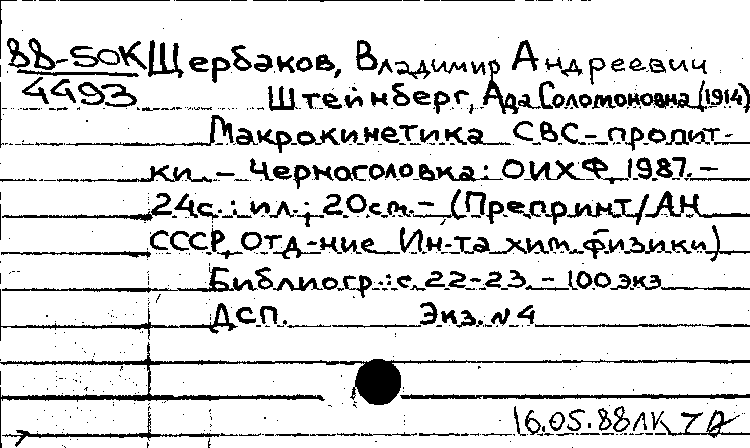 88-50К Щербаков, Владимир Андреевич
4493 Штейнберг, Ада Соломоновна (1914)
Макрокинетика СВС-пропит-
ки. – Черноголовка: ОИХФ, 1987. –
24с.: ил.; 20см. – (Препринт/АН
СССР, Отд-ние Ин-та хим. физики)
Библиогр.: с. 22-23. – 100 экз
ДСП. Экз. № 4
16.05.88